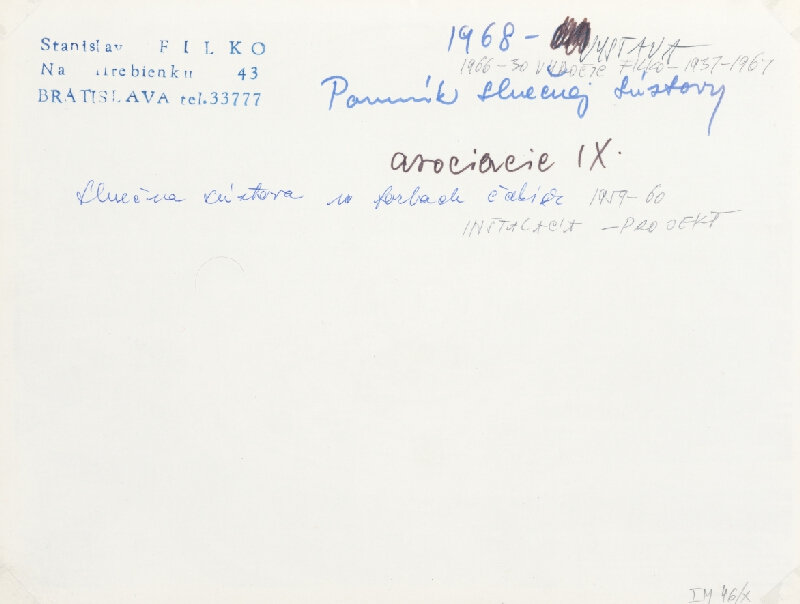 Stanislav FILKO
Na Hrebienku 43
BRATISLAVA tel.33777
1968 - VÝSTAVA
1966-30 VÝROČIE FILKO-1937-1967
Pomník slnečnej sústavy
asociacie IX.
Slnečná sústava vo farbách 1959-60
INŠTALÁCIA - PROJEKT
IM 46/x